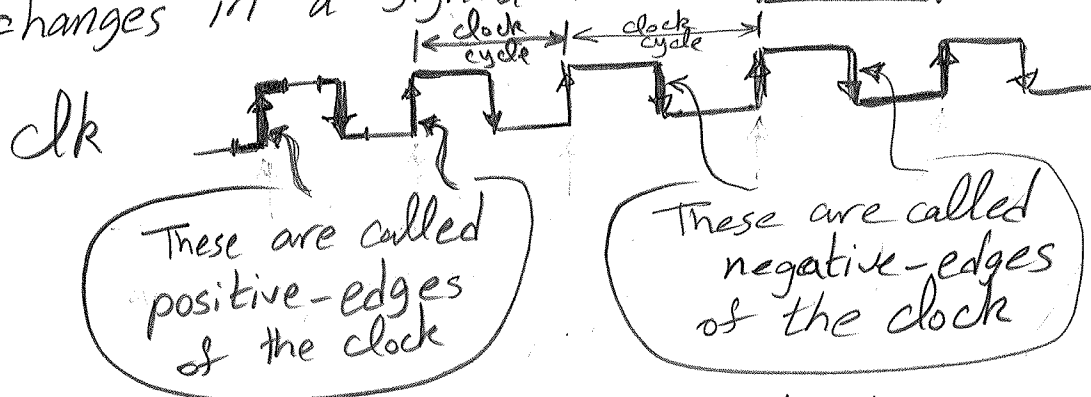 changes in a signal
clock
cycle
clock
cycle
clk
These are called
positive-edges
of the clock
These are called
negative-edges
of the clock